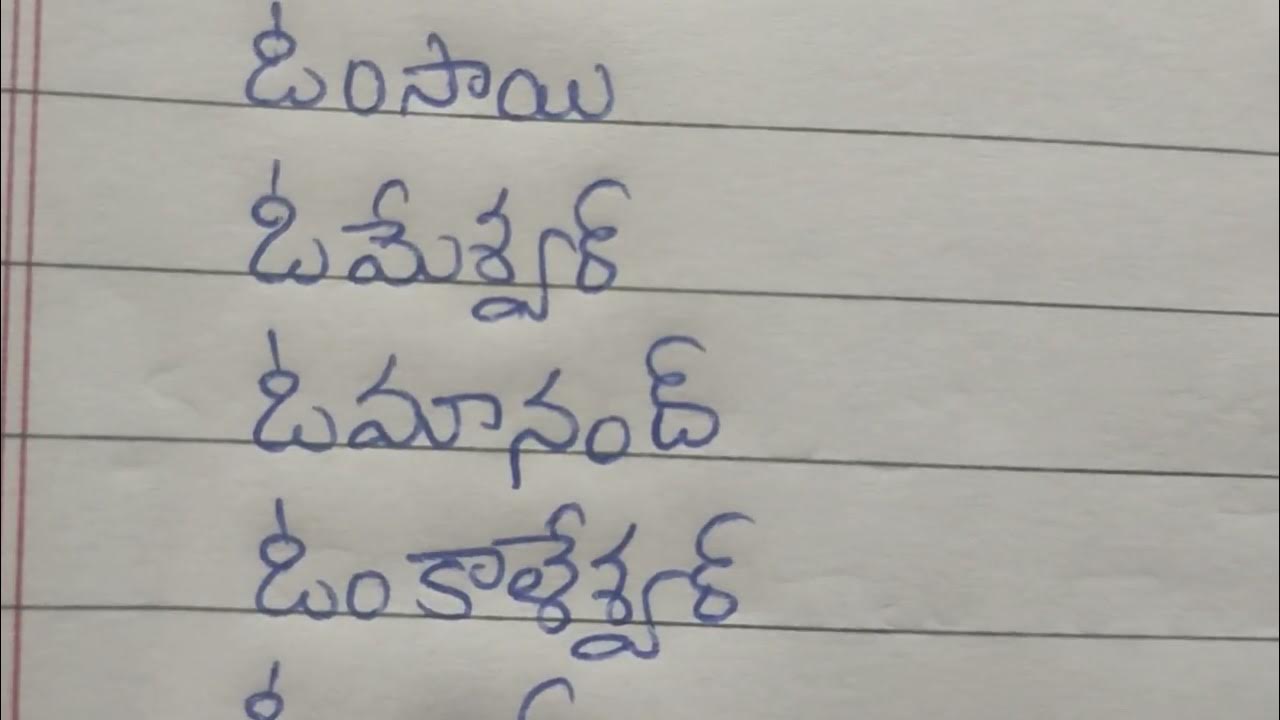 ఓంసాయి
ఓమేశ్వర్
ఓమానంద్
ఓంకాళేశ్వర్